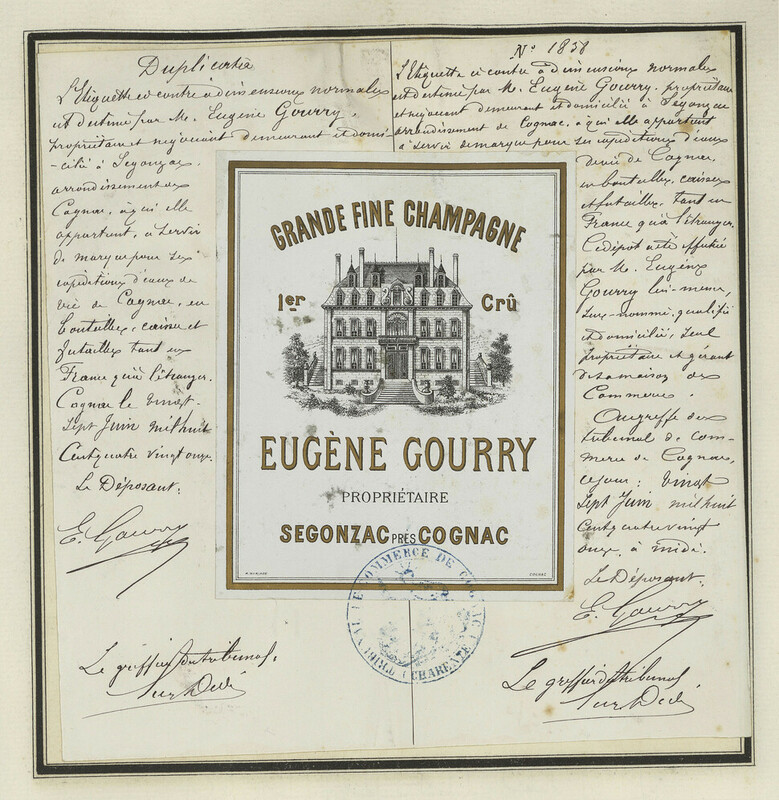 Duplicata
L'Etiquette ci contre à dimensions normales
est destiné par M. Eugène Gourry,
propriétaire et négociant demeurant et domi-
-cilié à Segonzac,
arrondissement de
Cognac, à qui elle
appartient, à servir
de marque pour ses
expéditions d'eaux de
vie de Cognac, en
bouteilles, caisses et
futailles tant en
France qu'à l'étranger.
Cognac le vingt-
sept Juin mil huit
cent quatre vingt onze.
Le Déposant:
E. Gourry
Le greffier du tribunal,
N° 1858
L'Etiquette ci contre à dimensions normales
est destiné par M. Eugène Gourry, propriétaire
et négociant demeurant et domicilié à Segonzac
arrondissement de Cognac, à qui elle appartient
à servir de marque pour ses expéditions d'eaux
de vie de Cognac,
en bouteilles, caisses
et futailles, tant en
France qu'à l'étranger.
Ce dépôt a été effectué
par M. Eugène
Gourry lui-même,
sus-nommé, qualifié
et domicilié, seul
propriétaire et gérant
de sa maison de
Commerce.
Au greffe du
tribunal de com-
merce de Cognac,
ce jour: vingt
sept Juin, mil huit
cent quatre vingt
onze, à midi.
Le Déposant:
E. Gourry
Le greffier du tribunal
GRANDE FINE CHAMPAGNE
1er Crû
EUGÈNE GOURRY
PROPRIÉTAIRE
SEGONZAC PRÈS COGNAC
COGNAC
TRIBUNAL DE COMMERCE DE COGNAC (CHARENTE)